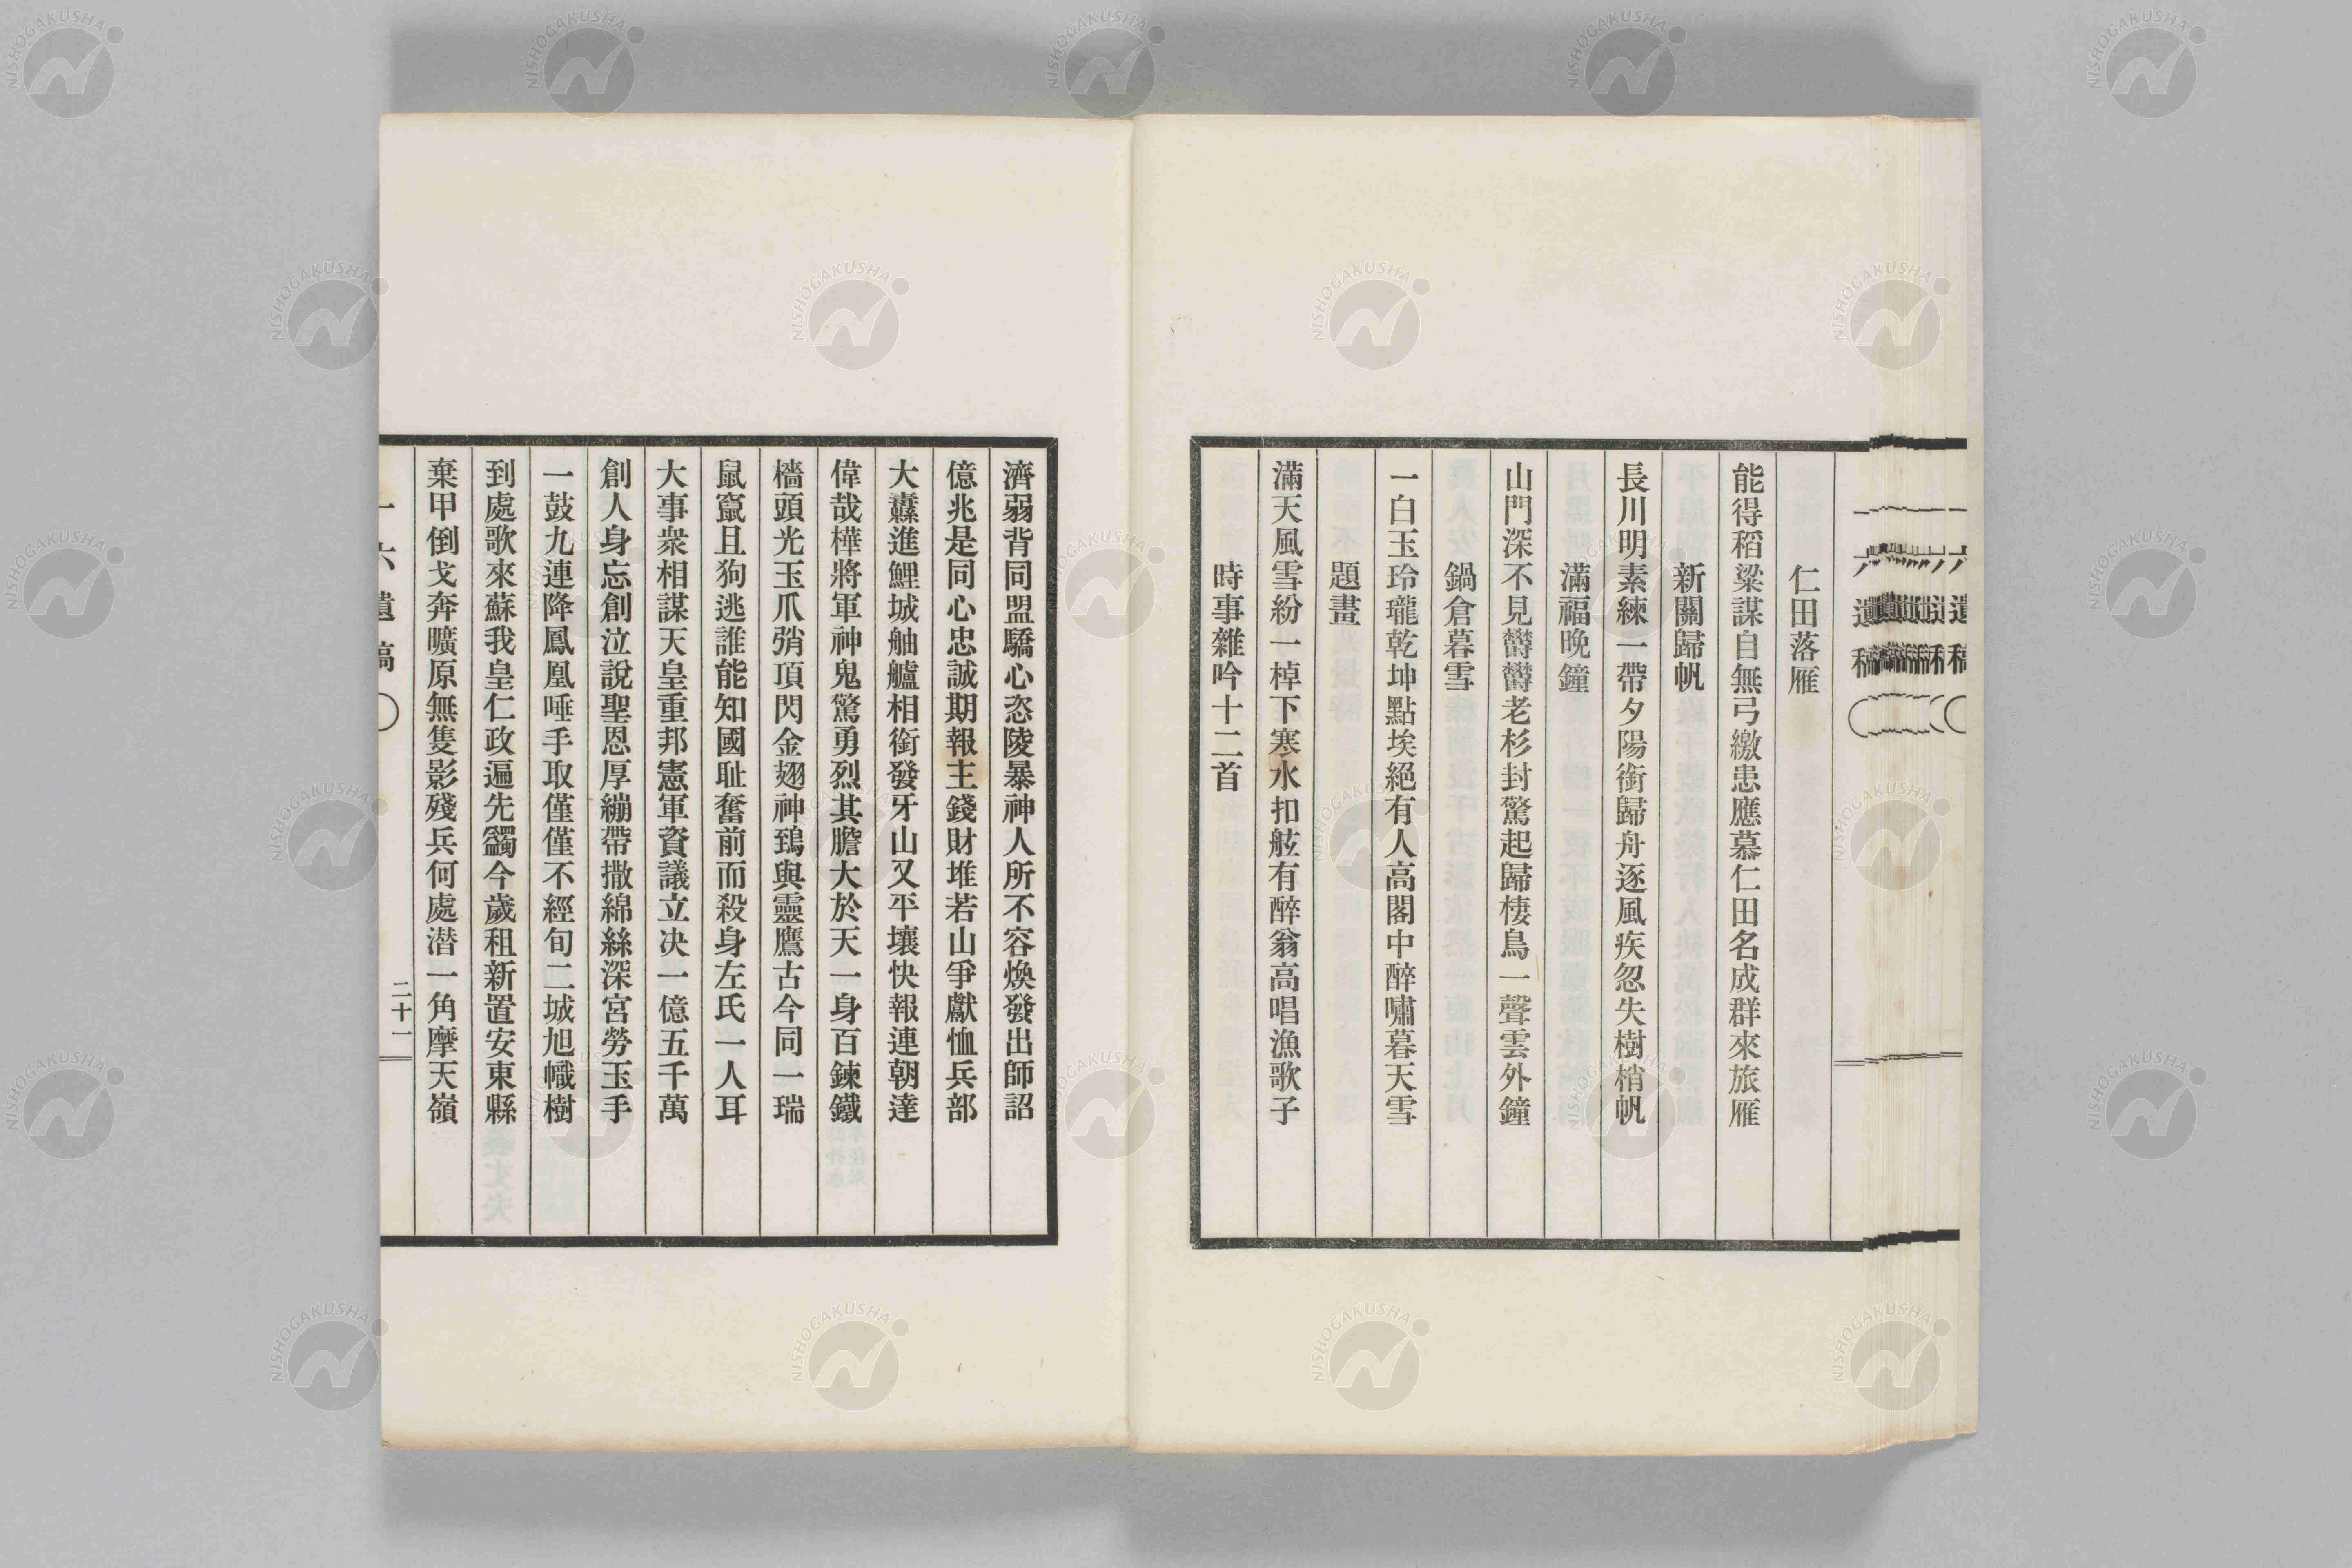 一六遺稿
仁田落雁
能得稻粱謀自無弓繳患應慕仁田名成群來旅雁
新關歸帆
長川明素練一帶夕陽銜歸舟逐風疾忽失樹梢帆
滿福晚鐘
山門深不見欝欝老杉封驚起歸棲鳥一聲雲外鐘
鍋倉暮雪
一白玉玲瓏乾坤點埃絕有人高閣中醉嘯暮天雪
題畫
滿天風雪紛一棹下寒水扣舷有醉翁高唱漁歌子
時事雜吟十二首
濟弱背同盟驕心恣陵暴神人所不容煥發出師詔
億兆是同心忠誠期報主錢財堆若山爭獻恤兵部
大纛進鯉城舳艫相銜發牙山又平壤快報連朝達
偉哉樺將軍神鬼驚勇烈其膽大於天一身百鍊鐵
檣頭光玉爪弰項閃金翅神鵄與靈鷹古今同一瑞
鼠竄且狗逃誰能知國耻奮前而殺身左氏一人耳
大事衆相謀天皇重邦憲軍資議立决一億五千萬
創人身忘創泣說聖恩厚繃帶撒綿絲深宮勞玉手
一鼓九連降鳳凰唾手取僅僅不經旬二城旭幟樹
到處歌來蘇我皇仁政遍先蠲今歲租新置安東縣
棄甲倒戈奔曠原無隻影殘兵何處潜一角摩天嶺
一六遺稿
二十一
NISHOGAKUSHA